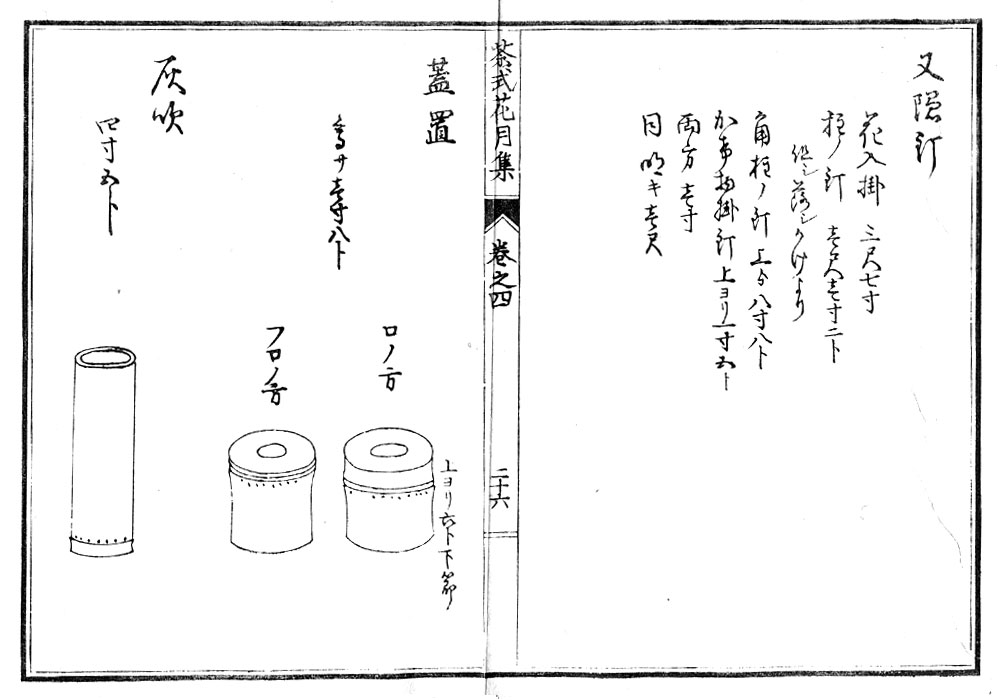 又隠釘
花入掛 三尺七寸
柱ノ釘 壱尺壱寸二ト
但シ落シかけより
角柱ノ釘 上ゟ八寸八ト
掛釘上ヨリ一寸五ト
両方壱寸
同 明キ壱尺
茶式花月集
巻之四
二十六
蓋置
高サ壱寸八ト
ロノ方
上ヨリ六ト下節
フロノ方
灰吹
四寸五ト